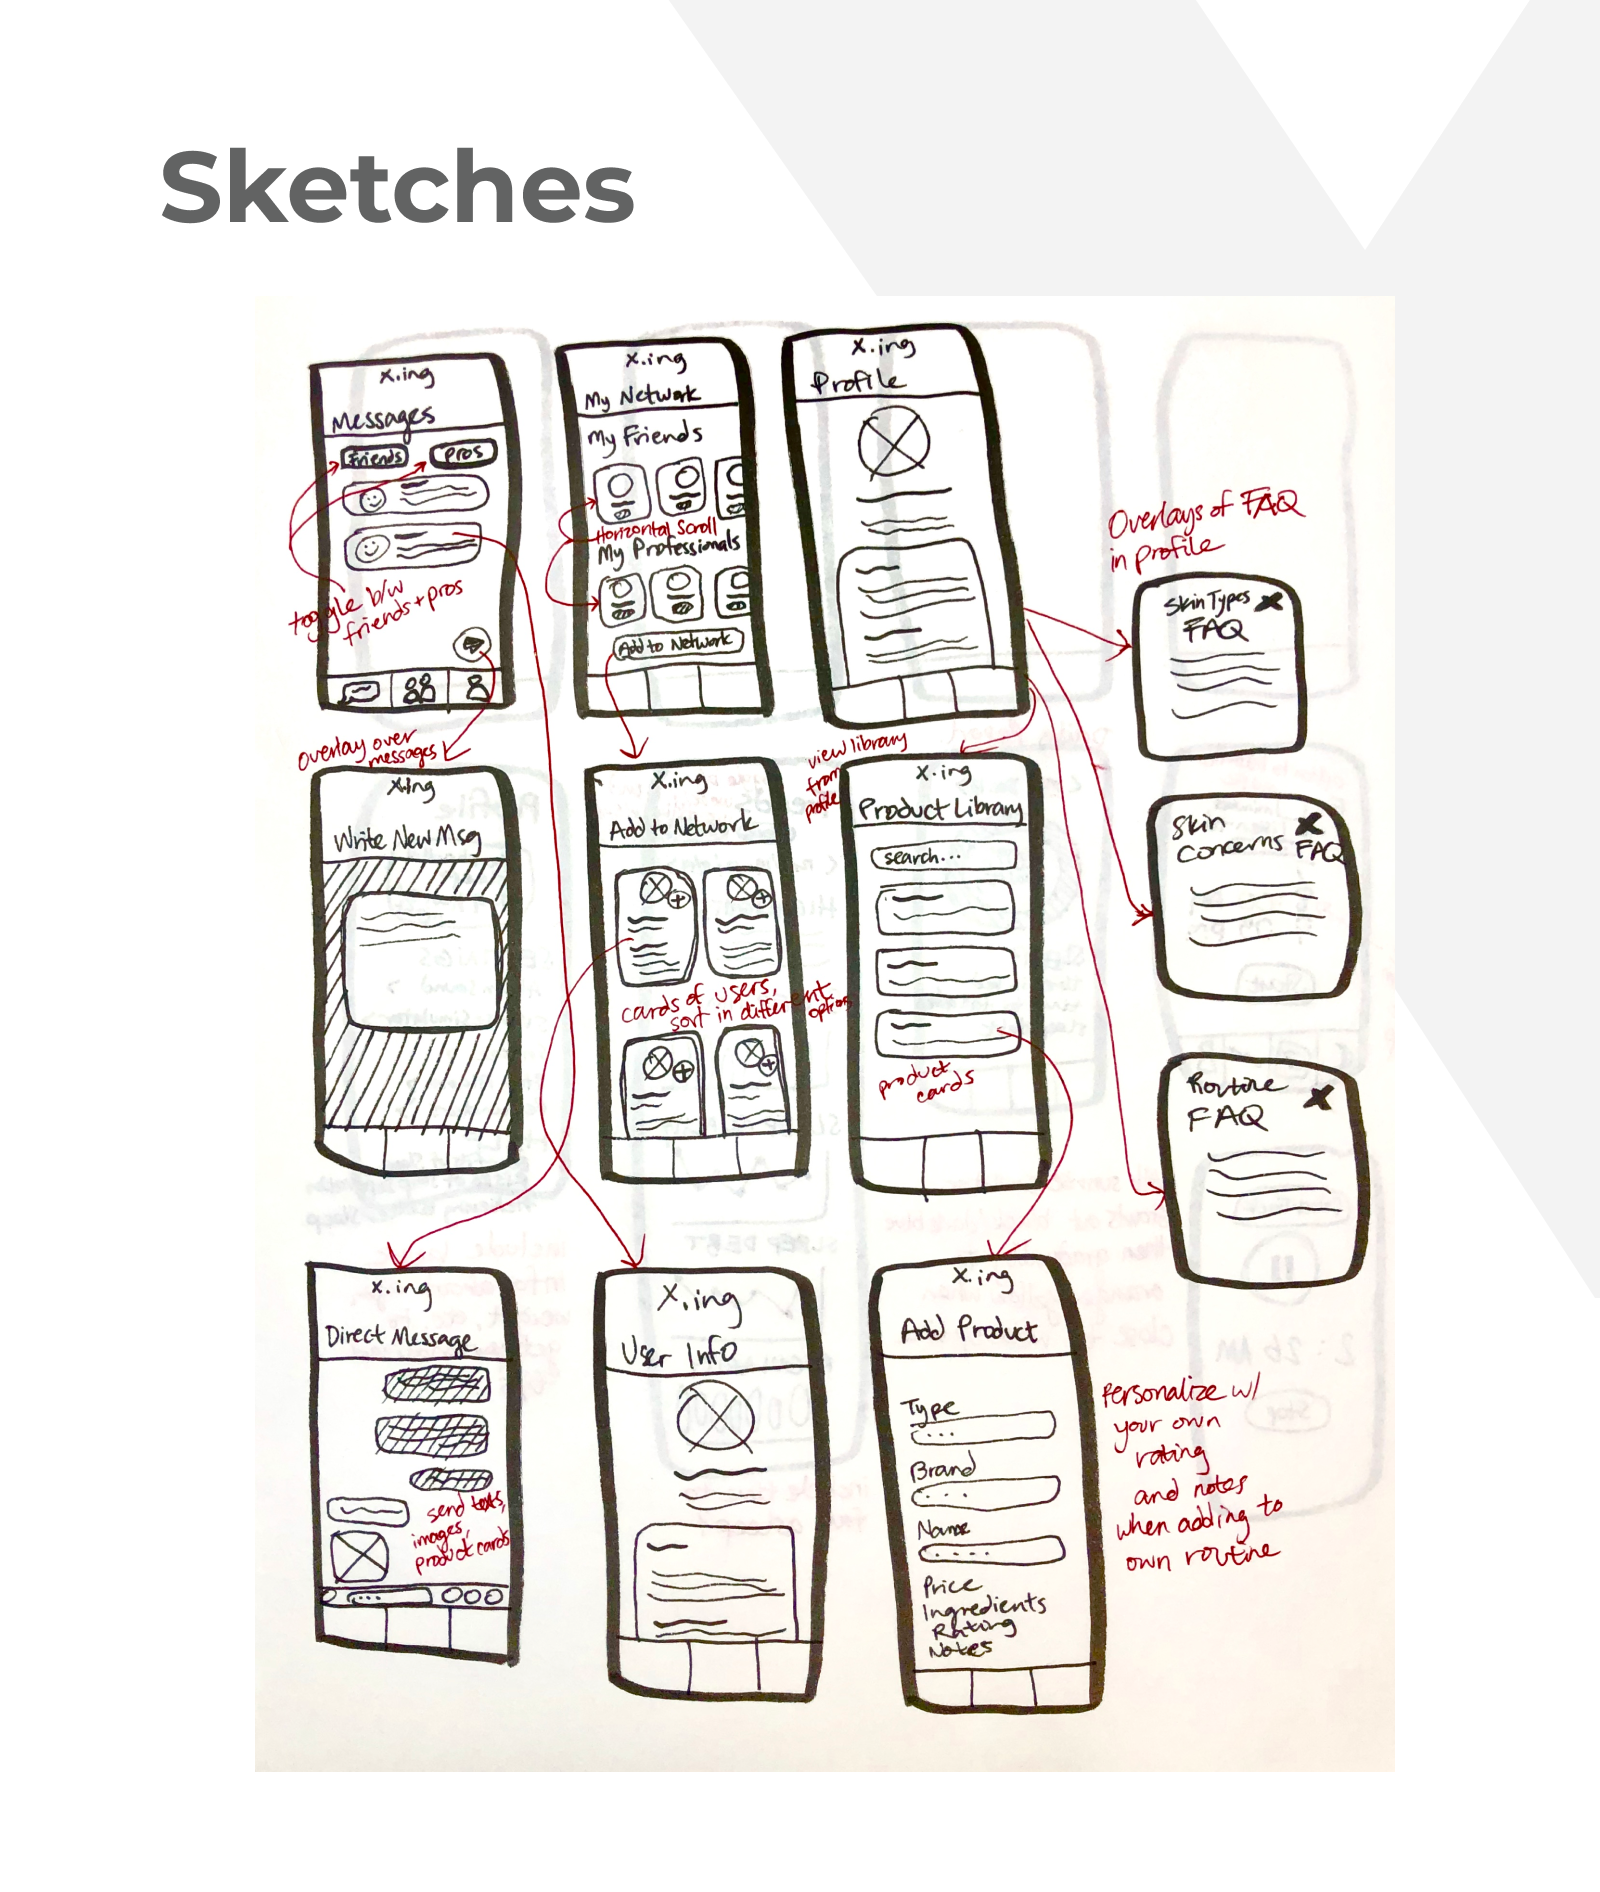 Sketches
x.ing
Messages
Friends
Pros
toggle b/w
friends + pros
x.ing
My Network
My Friends
Horizontal Scroll
My Professionals
Add to Network
x.ing
Profile
Overlays of FAQ
in profile
Skin Types
FAQ
Skin
Concerns FAQ
Routine
FAQ
overlay over
messages
x.ing
Write New Msg
x.ing
Add to Network
cards of users,
sort in different
options
view library
from
profile
x.ing
Product Library
search...
product
cards
x.ing
Direct Message
send texts,
images,
product cards
x.ing
User Info
x.ing
Add Product
Type
Brand
Name
Price
Ingredients
Rating
Notes
Personalize w/
your own
rating
and notes
when adding to
own routine